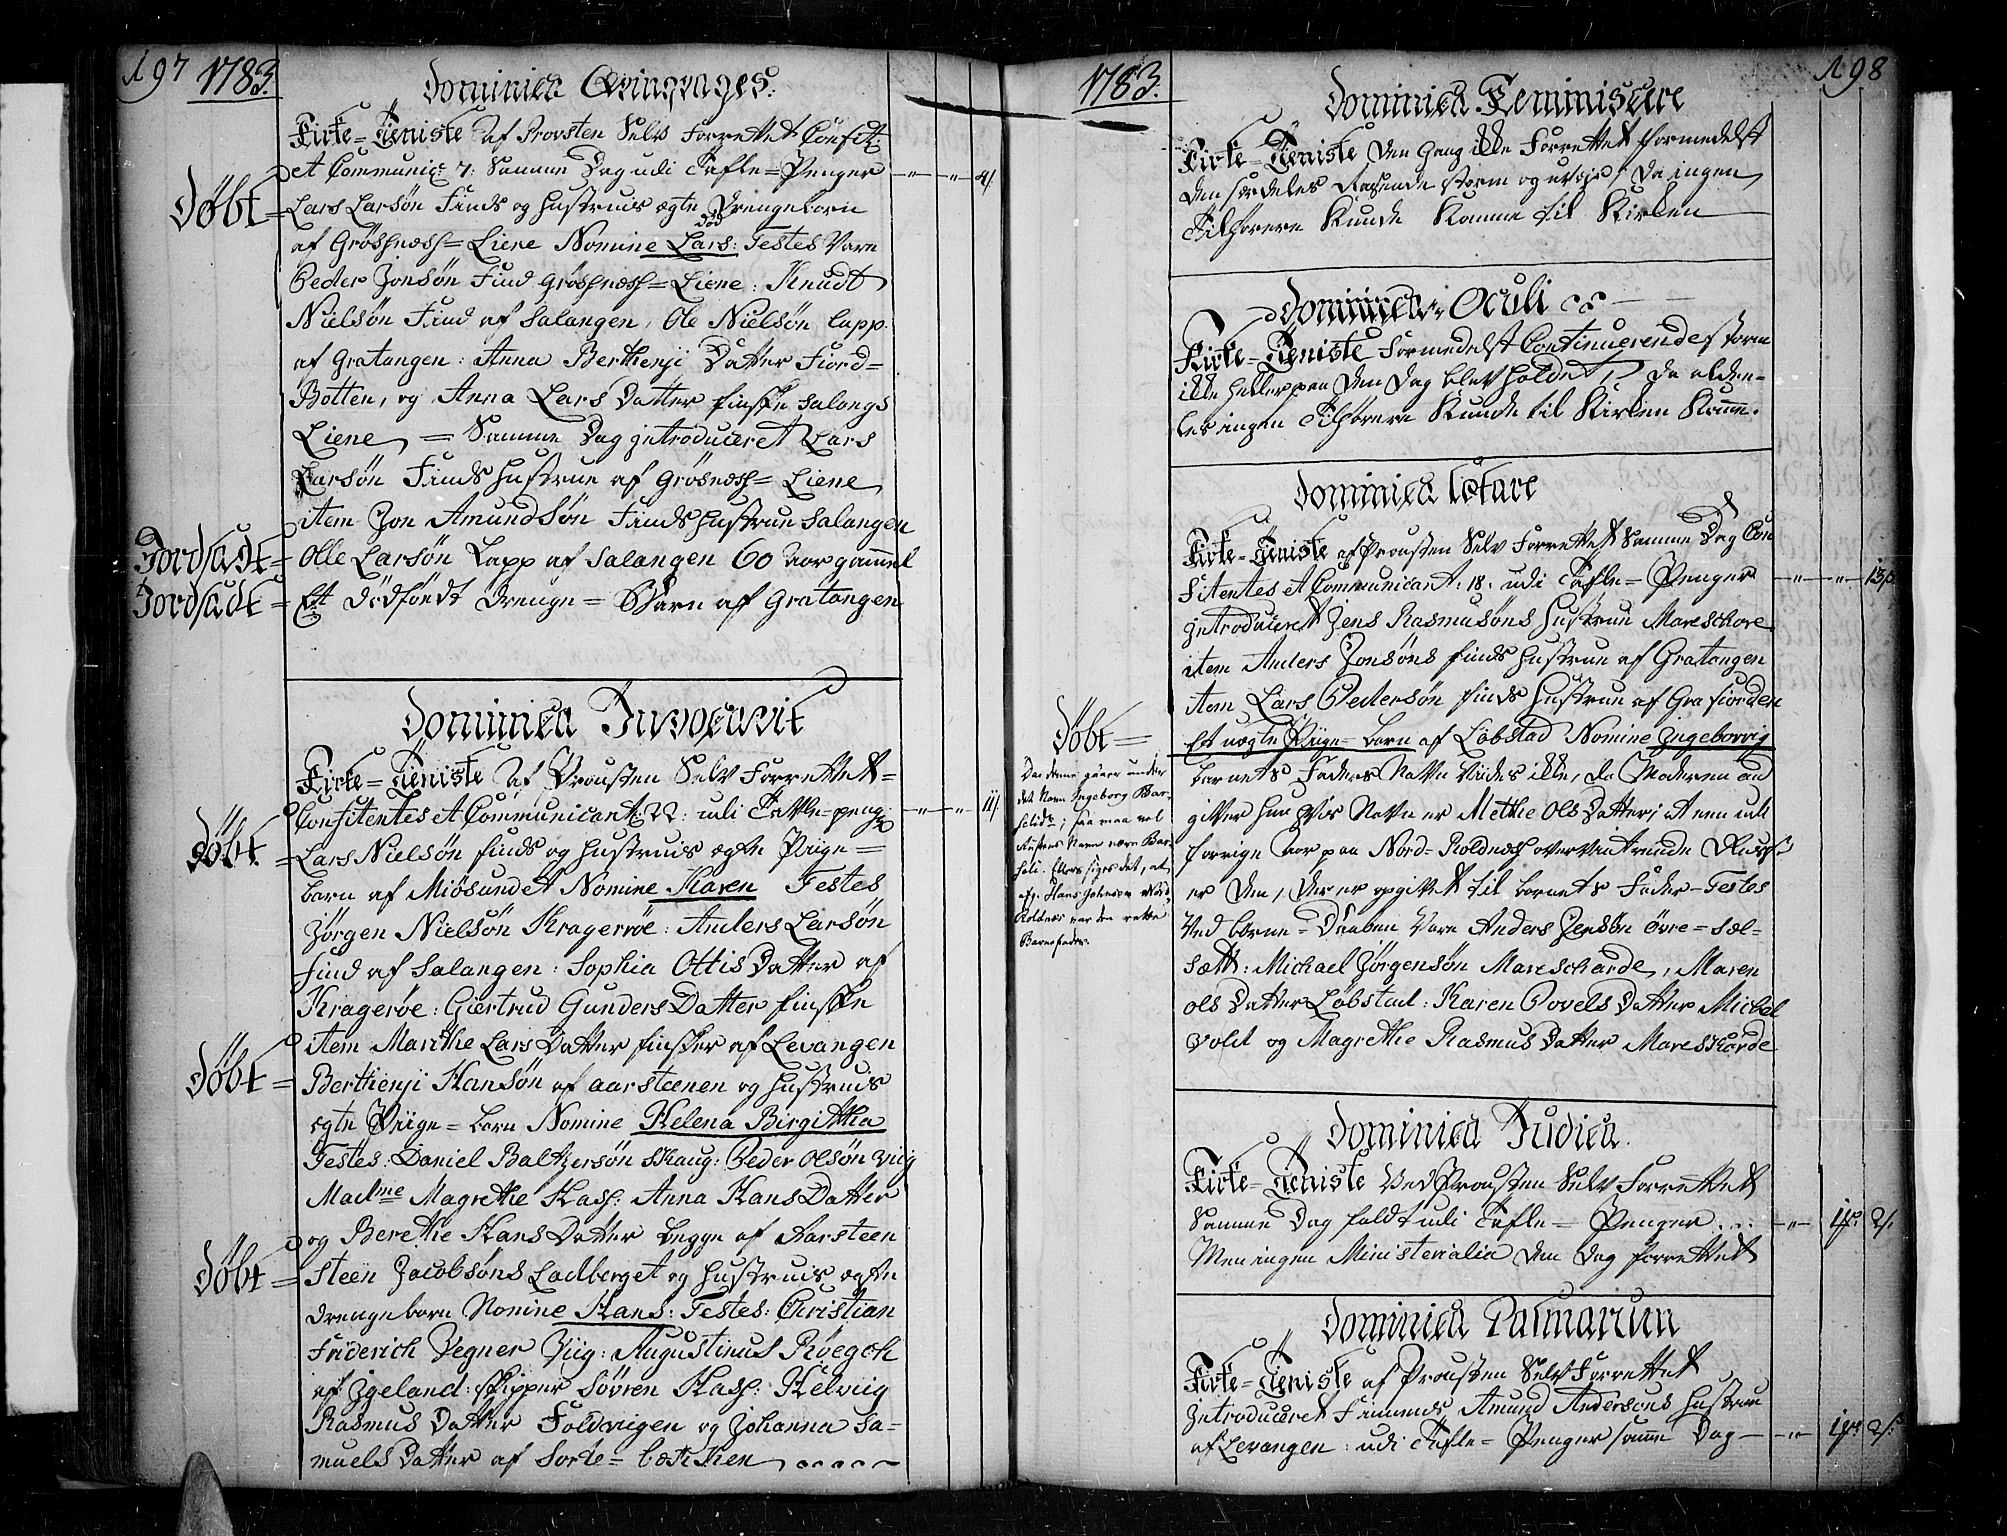 197 1783.
Dominica Qvinqvages:
Kirke-Tieniste af Provsten Selv Forrettet Confit:
et Communic: 7: Samme Dag udi Tafle-Penger 4/
Døbt = Lars Larsøn Finds og Hustruis ægte Drengebarn
død
af Grøssness-Liene Nomine Lars: Testes Vare
Peder Jonsøn Find Grøssness-Liene: Knudt
Nielsøn Find af Salangen, Ole Nielsøn Lapp.
af Gratangen: Anna Berthenji Datter Fiord-
Botten, og Anna Lars Datter finske Salangs
Liene = Samme Dag jntroduceret Lars
Larsøn Finds Hustrue af Grøsness-Liene
item Jon Amundsøn Finds Hustrue Salangen
Jordsadt = Olle Larsøn Lapp af Salangen 60 aar gammel
Jordsadt = Et Dødfødt Drenge-Barn af Gratangen
Dominica Invocavit
Kirke-Tieniste af Prousten Selv Forrettet-
Confitentes et Communicant: 22: udi Tafle-peng: 11/
Døbt = Lars Nielsøn finds og Hustruis ægte Piige-
barn af Miøsundet Nomine Karen Testes
Jørgen Nielsøn Kragerøe: Anders Larsøn
find af Salangen: Sophia Ottis Datter af
Kragerøe: Giertrud Gunders Datter finske
item Marithe Lars Datter finsker af Levangen
Døbt = Berthenji Hansøn af aarsteenen og Hustruis
ægte Piige-barn Nomine Helena Birgitha
Testes: Daniel Baltzersøn Skaug: Peder Olsøn viig
Madme Magrethe Hass: Anna Hans Datter
og Berethe Hans Datter begge af Aarsteen
Døbt = Steen Jacobsøns Ladberget og Hustruis ægte
Drenge barn Nomine Hans: Testes: Christian
Friderich Vegner Viig: Augustinus Røegch
af Jgeland: skipper Søvren Hass: Helviig
Rasmus Datter Foldvigen og Johanna Sa-
muels Datter af Sorte-
1783. 198
Dominica Reminiscere
Kirke-Tieniste Den Gang ikke Forrettet formedelst
Den særdeles Rasende storm og uvejr, Da ingen
Tilhørere Kunde Komme til Kirken
Dominica Oculi
Kirke-Tieniste Formedelst Continuerende storm
ikke heller paa Den Dag blev holdet, Da alden-
les ingen Tilhørere Kunde til Kirken Komme.
Dominica Letare
Kirke-Tieniste af Prousten Selv Forrettet Samme Dag Con
fitentes et Communicant: 18. udi Tafle-Penger 13/
jntroduceret Jens Rasmusøns Hustrue Mareschare
item Anders Jonsøns finds Hustrue af Gratangen
item Lars Pedersøn finds Hustrue af Grafiorden
Døbt = Et uægte Piige-barn af Løbstad Nomine Jngeborrig
barnets Faders Navn Viides ikke, da Moderen an
giver hvis Navn er Methe Ols Datter, at een udi
forrige aar paa Nord-Roldness overvintrende Russ-
er Den, Der er opgivet til barnets Fader-Testes
Ved Barne-Daaben Vare Anders Jensøn Øvre-Sæl-
sætt: Michael Jørgensøn Marescharde, Maren
Ols Datter Løbstad: Karen Povels Datter Mickel
Vold og Magrethe Rasmus Datter Mareskarde
Da denne gaaer under
det Navn Ingeborg Bar-
; saa maa vel
Russens Navn være Bar-
. Ellers siges det, at
Hans Johnsen Nord
Roldnes var den rette
Barnefader.
Dominica Judica.
Kirke-Tieniste Ved Prousten Selv Forrettet
Samme Dag faldt udi Tafle-Penger 2/
Men ingen Ministerialia Den Dag Forrettet
Dominica Palmarum
Kirke-Tieniste af Prousten Selv Forrettet
Jntroduceret Amund Andersøns Hustrue
af Levangen: udi Tafle-Penger samme Dag 2/